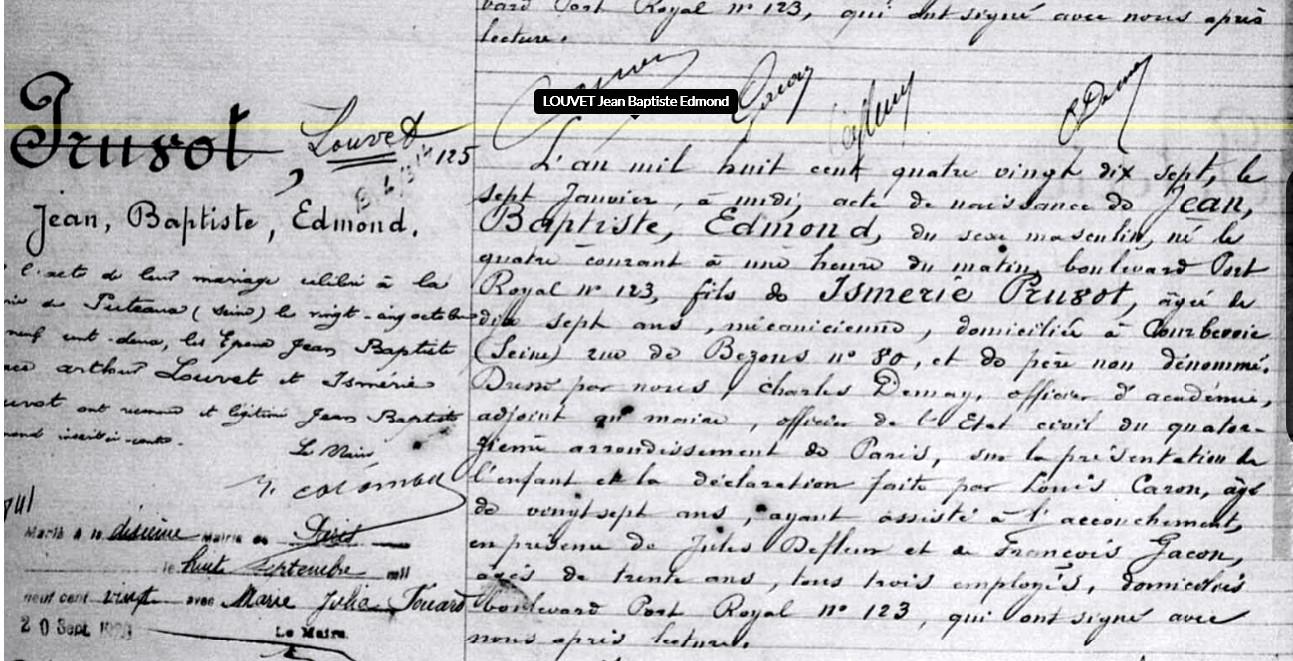 vard Port Royal n° 123, qui ont signé avec nous après
lecture.
LOUVET Jean Baptiste Edmond
Pruvot, Louvet
125
Jean, Baptiste, Edmond.
l'acte de leur mariage célébré à la
de Puteaux (Seine) le vingt-cinq octobre
neuf cent deux, les Epoux Jean Baptiste
arthur Louvet et Ismérie
ont reconnu et légitimé Jean Baptiste
inscrit ci-contre.
Le Maire
Marié à la dixième Mairie de Paris
le huit Septembre mil
neuf cent vingt avec Marie Julia
20 Sept.
Le Maire
L'an mil huit cent quatre vingt dix sept, le
sept Janvier, à midi, acte de naissance de Jean,
Baptiste, Edmond, du sexe masculin, né le
quatre courant à une heure du matin, boulevard Port
Royal n° 123, fils de Ismerie Pruvot, âgée de
dix sept ans, mécanicienne, domiciliée à Courbevoie
(Seine) rue de Bezons n° 80, et de père non dénommé.
Dressé par nous, Charles Demay, officier d'académie,
adjoint au maire, officier de l'Etat civil du quator-
zième arrondissement de Paris, sur la présentation de
l'enfant et la déclaration faite par Louis Caron, âgé
de vingt sept ans, ayant assisté à l'accouchement,
en présence de Jules Defleur et de François Gacon,
agés de trente ans, tous trois employés, domiciliés
boulevard Port Royal n° 123, qui ont signé avec
nous après lecture.